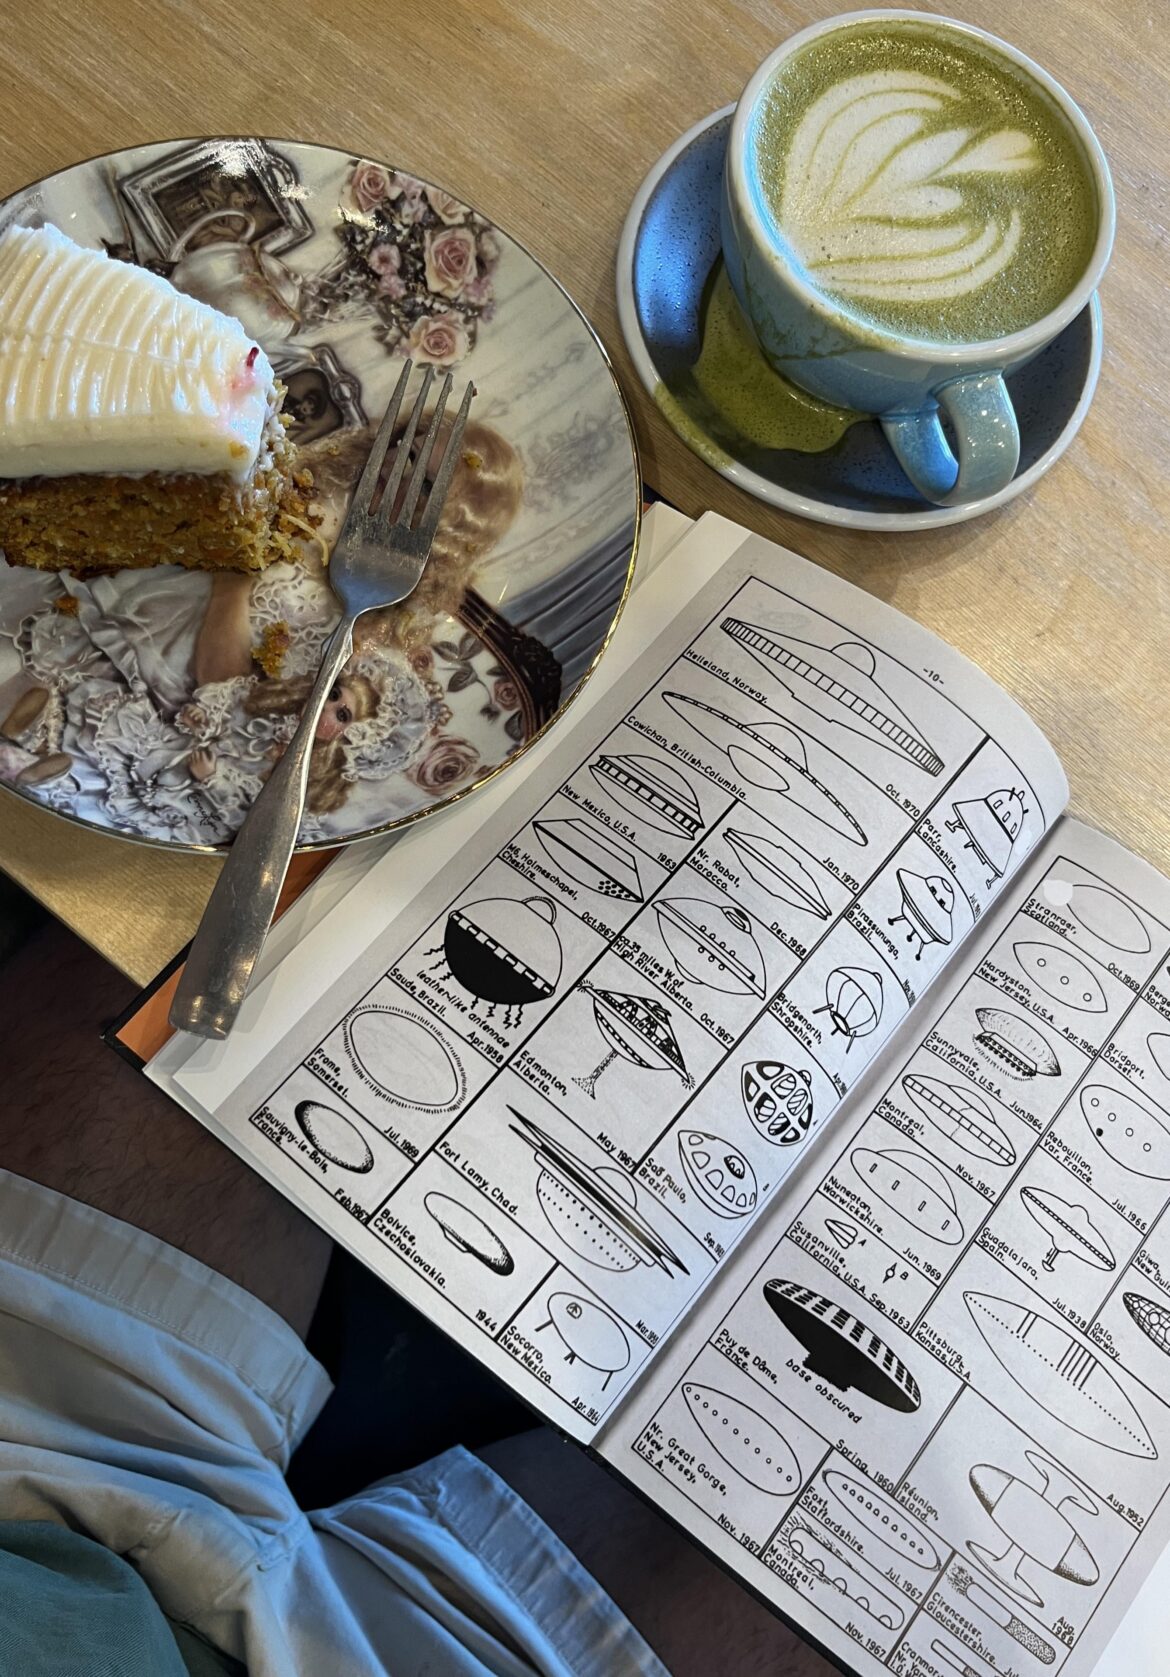 -10-
Helleland, Norway.
Oct. 1970
Cowichan, British-Columbia.
Jan. 1970
New Mexico, U.S.A.
1963
Nr. Rabat,
Morocco.
Dec. 1968
Parr,
Lancashire.
M6, Holmeschapel,
Cheshire.
Oct. 1967
ca. 35 miles W. of
High River, Alberta.
Oct. 1967
Pirassununga,
Brazil.
leather-like antennae
Saude, Brazil.
Apr. 1958
Edmonton,
Alberta.
May 1967
Bridgenorth,
Shropshire.
Frome,
Somerset.
Jul. 1969
Fort Lamy, Chad.
São Paulo,
Brazil.
Sauvigny-le-Bois,
France.
Bolvice,
Czechoslovakia.
1944
Socorro,
New Mexico.
Apr. 1964
Stranraer,
Scotland.
Oct. 1969
Hardyston,
New Jersey, U.S.A.
Bridport,
Dorset.
Sunnyvale,
California, U.S.A.
Jun. 1964
Rebouillon,
Var, France.
Jul. 1966
Montreal,
Canada.
Nov. 1967
Guadalajara,
Spain.
Jul. 1938
Nuneaton,
Warwickshire.
Jun. 1969
Oslo,
Norway.
Susanville,
California, U.S.A. Sep. 1963
A
B
Pittsburg,
Kansas, U.S.A.
Aug. 1952
Puy de Dôme,
France.
base obscured
Spring, 1960
Réunion,
Island.
Aug.
1968
Nr. Great Gorge,
New Jersey,
U.S.A.
Nov. 1967
Foxt,
Staffordshire.
Jul. 1967
Cirencester,
Gloucestershire.
Montreal,
Canada.
Nov. 1967